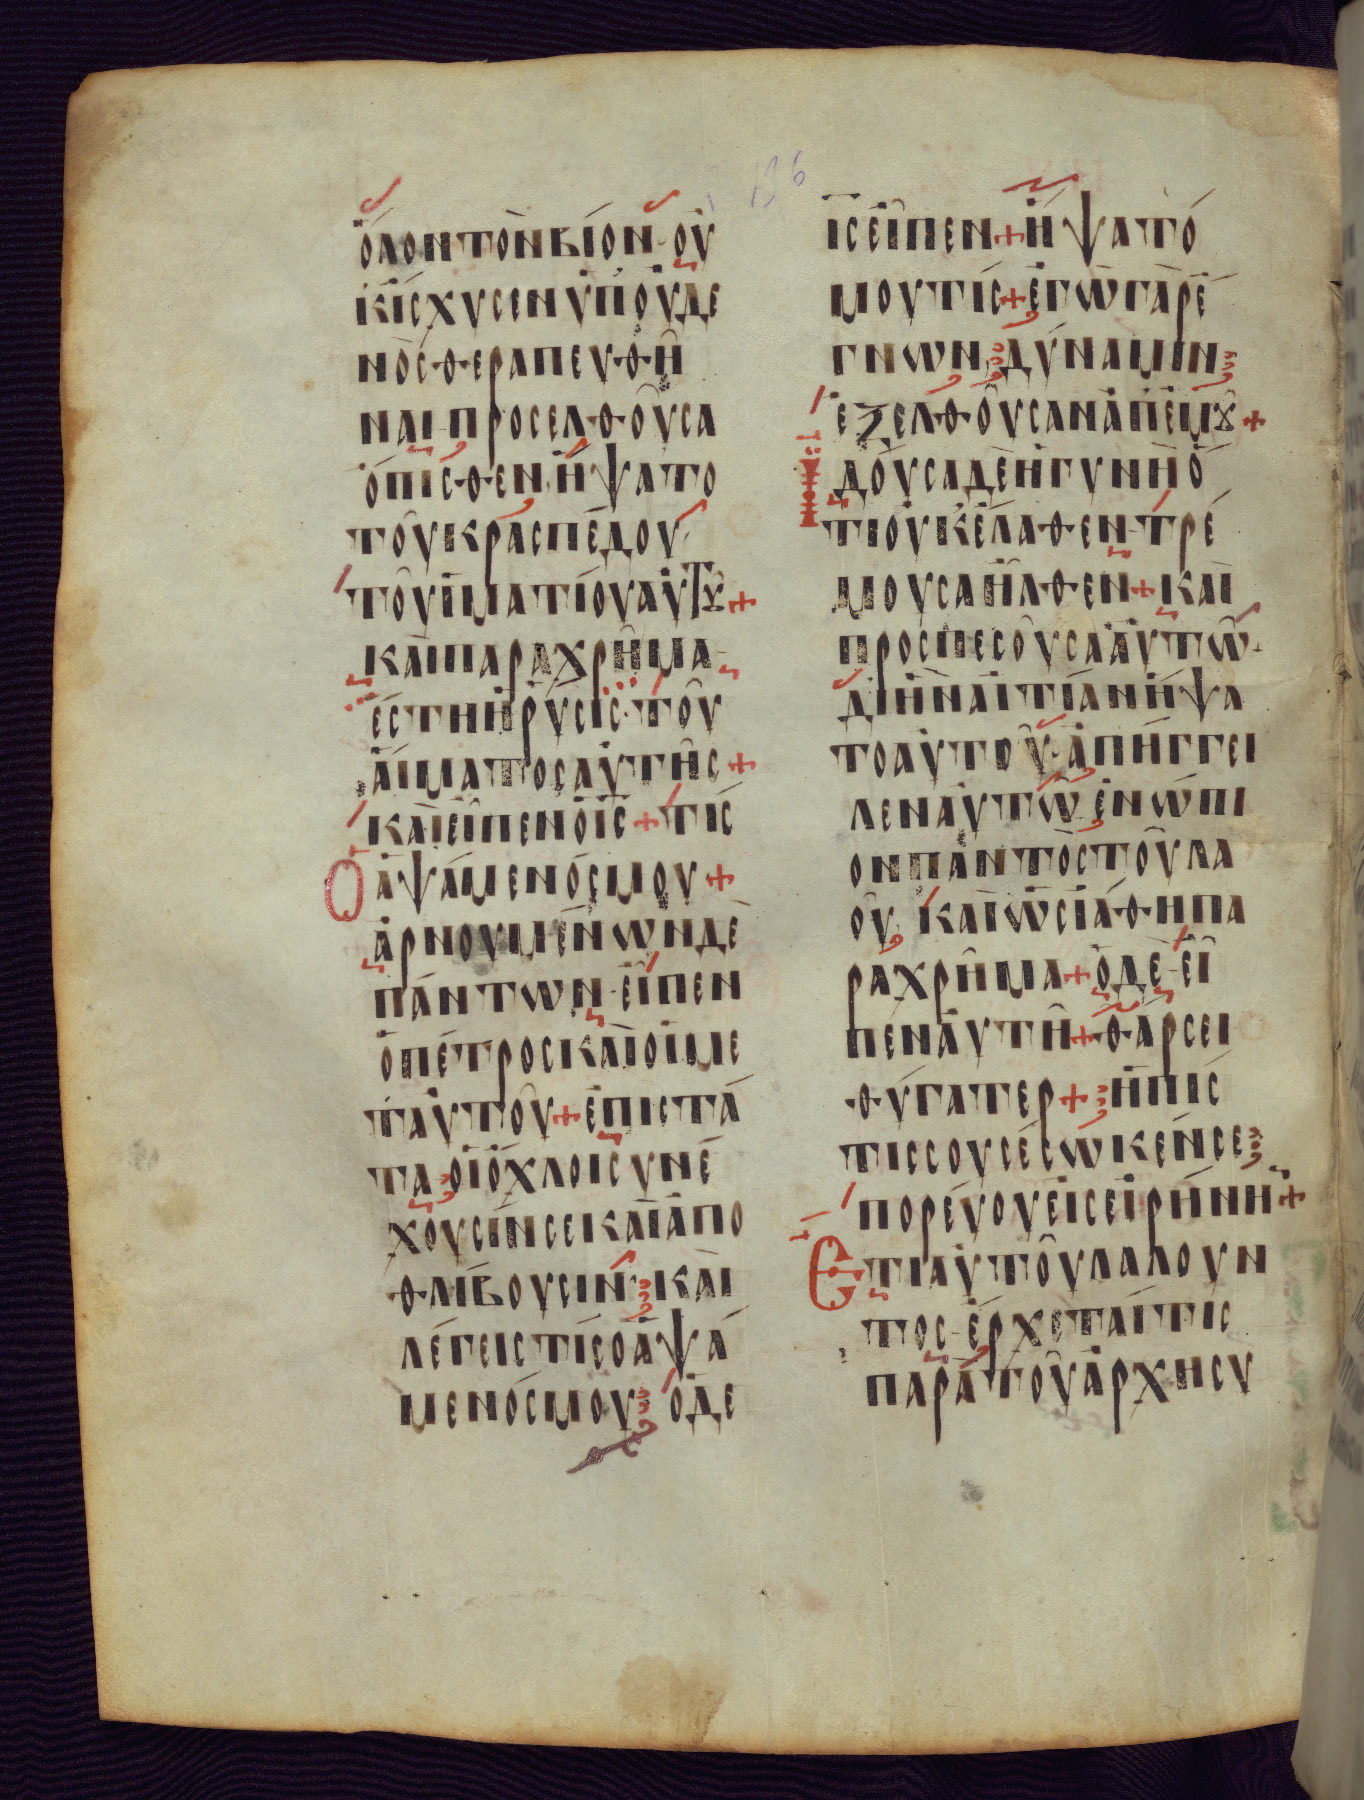 136
ὅλον τὸν βίον οὐ
κ ἴσχυσεν ὑπ' οὐδε
νὸς θεραπευθῆ
ναι προσελθοῦσα
ὄπισθεν ἥψατο
τοῦ κρασπέδου
τοῦ ἱματίου αὐτȣ +
καὶ παραχρῆμα
ἔστη ἡ ῥύσις τοῦ
αἵματος αὐτῆς +
καὶ εἶπεν ὁ ις + τίς
ὁ ἁψάμενός μου +
ἀρνουμένων δὲ
πάντων εἶπεν
ὁ πέτρος καὶ οἱ με
τ' αὐτοῦ + ἐπιστά
τα οἱ ὄχλοι συνέ
χουσίν σε καὶ ἀπο
θλίβουσιν καὶ
λέγεις τίς ὁ ἁψά
μενός μου ὁ δὲ
ις εἶπεν + ἥψατό
μου τίς + ἐγὼ γὰρ ἔ
γνων δύναμιν
ἐξελθοῦσαν ἀπ' ἐμȣ +
ἰδοῦσα δὲ ἡ γυνὴ ὅ
τι οὐκ ἔλαθεν τρέ
μουσα ἦλθεν + καὶ
προσπεσοῦσα αὐτῷ
δι' ἣν αἰτίαν ἥψα
το αὐτοῦ ἀπήγγει
λεν αὐτῷ ἐνώπι
ον παντὸς τοῦ λα
οῦ καὶ ὡς ἰάθη πα
ραχρῆμα + ὁ δὲ εἶ
πεν αὐτῇ + θάρσει
θύγατερ + ἡ πίσ
τις σου σέσωκέν σε
πορεύου εἰς εἰρήνην +
Ἔτι αὐτοῦ λαλοῦν
τος ἔρχεταί τις
παρὰ τοῦ ἀρχησυ